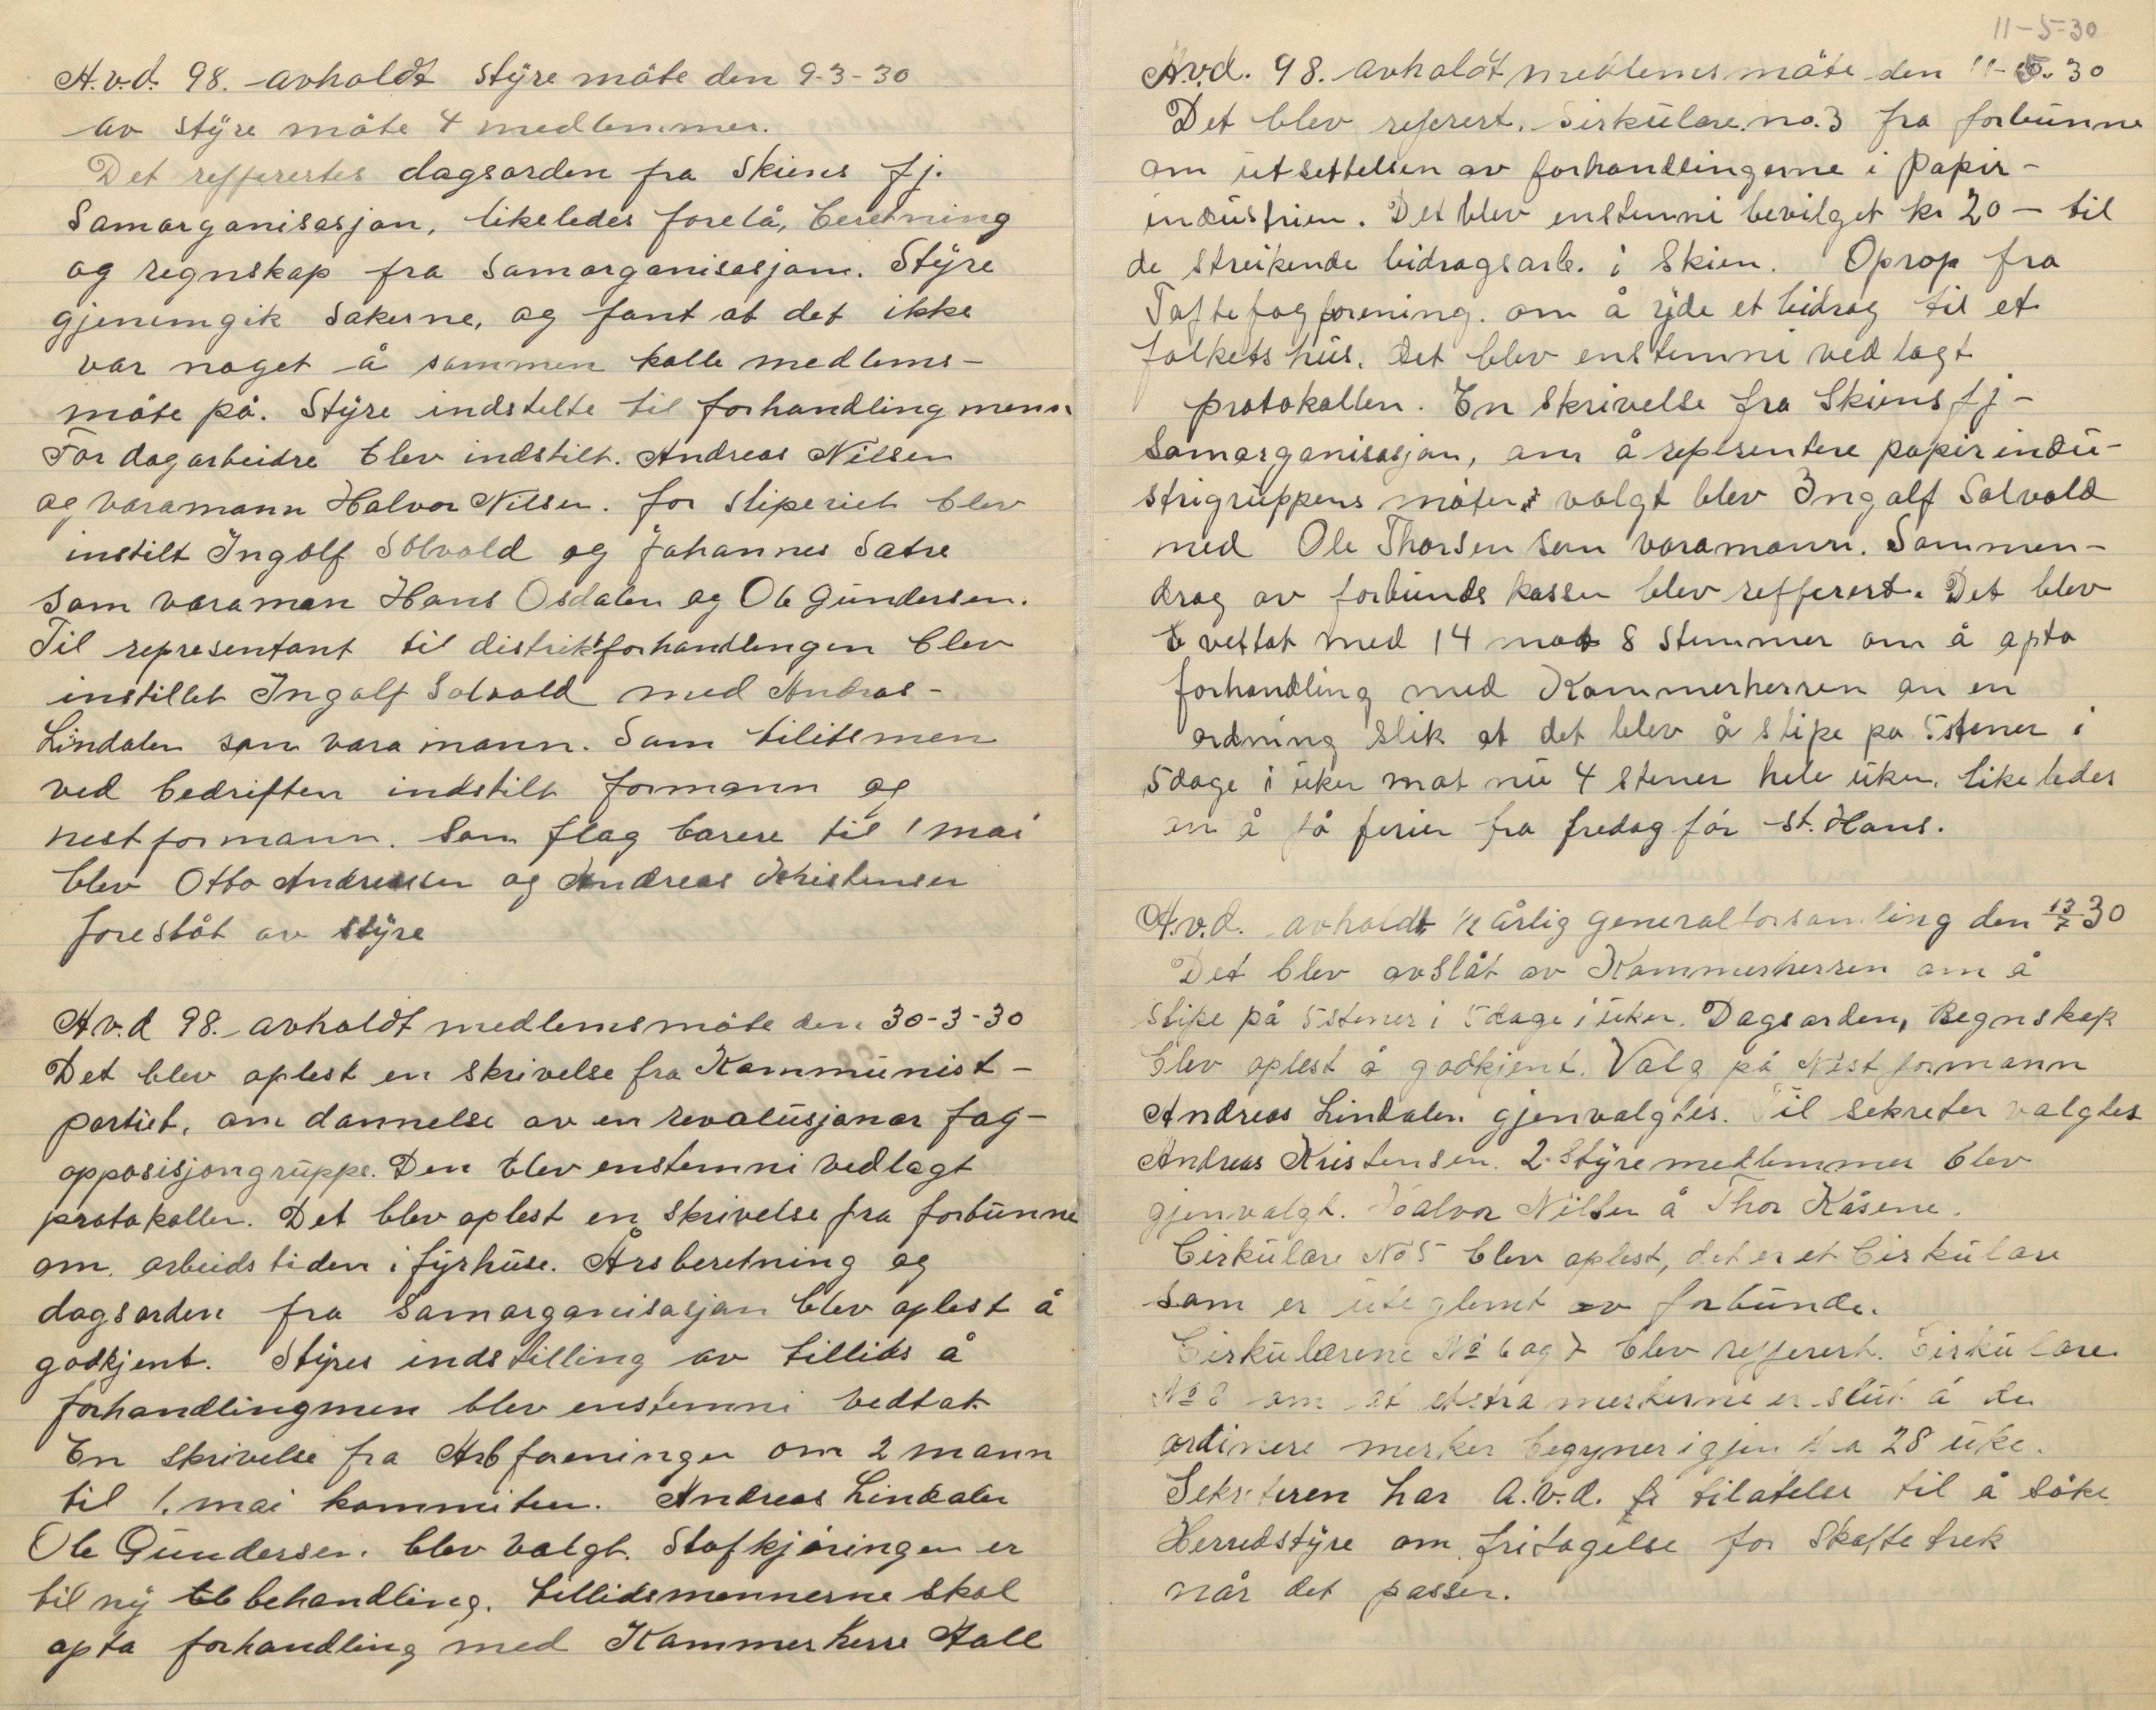 A.v.d. 98. avholdt styre möte den 9-3-30
av styre möte 4 medlemmer.
Det refferertes dagsorden fra Skiens fj.
Samorganisasjon, likeledes forelå, beretning
og regnskap fra Samorganisasjon. Styre
gjenemgik sakerne, og fant at det ikke
var noget å sammen kalle medlems-
möte på. Styre indstelte til forhandling menn
For dagarbeidre blev indstilt. Andreas Nilsen
og varamann Halvor Nilsen. for sliperiet blev
instilt Ingolf Solvold og Johannes Satre
som varamen Hans Osdalen og Ole Gundersen.
Til representant til distriktforhandlingen blev
instillet Ingolf Solvold med Andras-
Lindalen som vara mann. Som tilitsmen
ved bedriften indstilt formann og
nestformann. Som flag barere til 1 mai
blev Otto Andreassen og Andreas Kristensen
foreslåt av styre
A.v.d 98. avholdt medlemsmöte den 30-3-30
Det blev oplest en skrivelse fra Kommunist-
partiet, om dannelse av en revolusjonær fag-
opposisjongruppe. Den blev enstemni vedlagt
protokollen. Det blev oplest en skrivelse fra forbunne
om. arbeids tiden i fyrhuse. Årsberetning og
dagsorden fra samorganisasjon blev oplest å
godkjent. Styres indstilling av tillids å
forhandlingmen blev enstemni vedtat.
En skrivelse fra Arbforeningen om 2 mann
til 1. mai kommiteen. Andreas Lindalen
Ole Gundersen. blev valgt. Stofkjøringen er
til ny behandling. tillidsmennerne skal
opta forhandling med Kammerherre Aall
11-5-30
A.v.d. 98. avholdt medlemsmöte den 11-5-30
Det blev referert. Sirkulære. no. 3 fra forbunne
om utsettelsen av forhandlingerne i papir-
industrien. Det blev enstemni bevilget kr 20- til
de streikende bidragsarb. i Skien. Oprop fra
Toftefagforening. om å yde et bidrag til et
folkets hus. Det blev enstemni vedlagt
protokollen. En skrivelse fra Skiens fj-
Samorganisasjon, om å represntere papirindu-
strigruppens möter valgt blev Ingolf Solvold
med Ole Thorsen som varamann. Sammen-
drag av forbunds kassen blev refferert. Det blev
vettat med 14 mot 8 stemmer om å opta
forhandling med Kammerherren om en
ordning slik at det blev å slipe pa 5 stener i
5 dage i uken mot nu 4 stener hele uken. likeledes
om å få ferien fra fredag før St. Hans.
A.v.d. avholdt 1/2 årlig generalforsamling den 13/7 30
Det blev avslåt av Kammerherren om å
slipe på 5 stener i 5 dage i uken. Dagsorden, Regnskap
blev oplest å godkjent. Valg på Nestformann
Andreas Lindalen gjenvalgtes. Til sekreter valgtes
Andreas Kristensen. 2. Styremedlemmer blev
gjenvalgt. Halvor Nilsen å Thor Kåsene.
Cirkulære No 5 blev oplest, det er et Cirkulære
som er uteglemt av forbunde.
Cirkulærene No 6 og 7 blev refferert. Cirkulære
No 8 om at ekstra merkerne er slut å de
ordinere merker begyner igjen fra 28 uke.
Sekreteren har A.v.d. tilatelse til å söke
Herredstyre om fritagelse for skattetrek
når det passer.